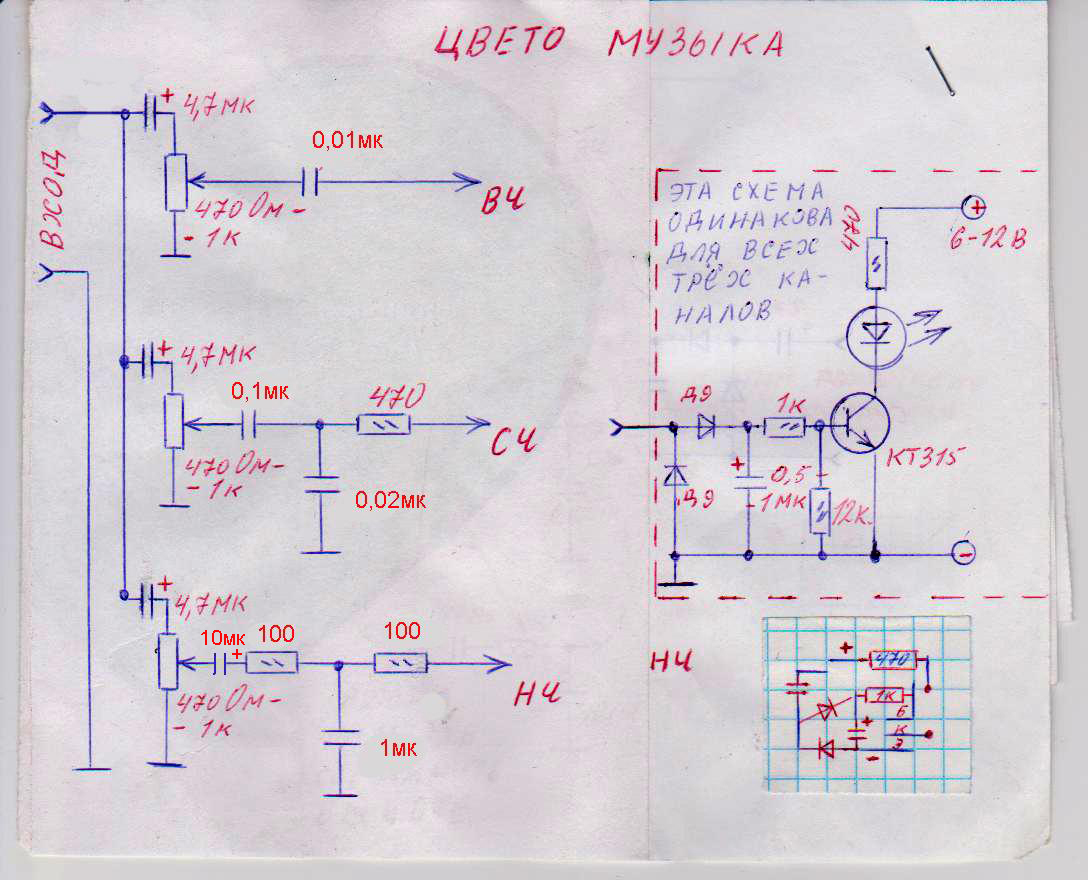 ЦВЕТО МУЗЫКА
ВХОД
+ 4,7мк
0,01мк
470 Ом -
- 1к
ВЧ
+ 4,7мк
0,1мк
470
470 Ом -
- 1к
СЧ
0,02мк
+ 4,7мк
10мк
+
100
100
470 Ом -
- 1к
НЧ
1мк
ЭТА СХЕМА
ОДИНАКОВА
ДЛЯ ВСЕХ
ТРЁХ КА-
НАЛОВ
470
+
6-12В
Д9
1к
КТ315
Д9
+
0,5 -
- 1МК
12к.
-
НЧ
+
470
1К
Б
К
Э
+
-